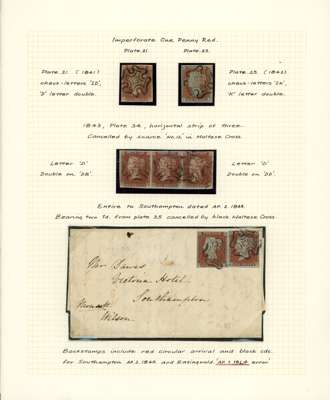 Imperforate One Penny Red.
Plate.21. Plate.25.
Plate.21. (1841)
check-letters
'D' letter double.
Plate.25 (1842)
check-letters
'K' letter double.
1843, Plate 34, horizontal strip of three.
Cancelled by scarce 'No.12,' in Maltese Cross.
Letter 'D'
Double on 'DB'.
Letter 'D'
Double on 'DD'.
Entire to Southampton dated AP.2.1843.
Bearing two 1d. from plate 35 cancelled by black Maltese Cross.
Mrs Dawes
Victoria Hotel,
Southampton
Wilson.
Backstamps include red circular arrival and black cds.
for Southampton AP.2.1843. and Basingwold error'